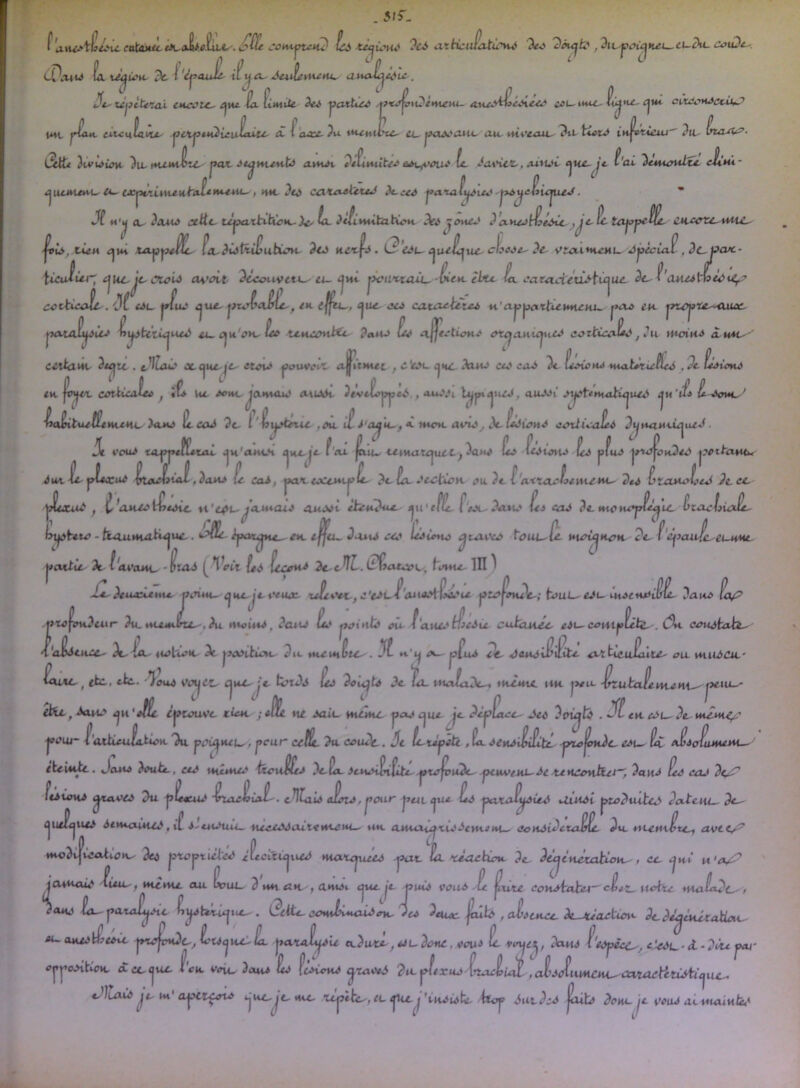 . 515 .
l'anesthésie cutanée est absolue. Elle comprend les régions des articulations des doigts, du poignet et du coude.
Dans la région de l'épaule il y a seulement analgésie.
Je répéterai encore que la limite des parties profondément anesthésiées est une ligne qui circonscrit
un plan circulaire perpendiculaire à l'axe du membre et passant au niveau du tiers inférieur du bras.
Cette division du membre par segments ainsi délimités est, vous le savez, ainsi que je l'ai démontré clini-
quement et expérimentalement, un des caractères de ces paralysies psychiques.
Il n'y a dans cette répartition, de la délimitation des zones d'anesthésie, je le rappelle encore une
fois, rien qui rappelle la distribution des nerfs. C'est quelque chose de vraiment spécial, de par-
ticulier, que je crois avoir découvert et qui pourrait bien être la caractéristique de l'anesthésie
corticale. Il est plus que probable, en effet, que ces caractères n'appartiennent pas en propre aux
paralysies hystériques et qu'on les rencontre dans les affections organiques corticales, du moins à un
certain degré. Mais ce que je crois pouvoir affirmer, c'est que dans ces cas de lésions matérielles, de lésions
en foyer corticales, ils ne sont jamais aussi développés, aussi typiques, aussi systématiques qu'ils le sont
habituellement dans le cas de l'hystérie, où il s'agit, à mon avis, de lésions corticales dynamiques.
Je vous rappellerai qu'ainsi que je l'ai fait remarquer, dans les lésions les plus profondes portant
sur le plexus brachial, dans le cas, par exemple de la section ou de l'arrachement des branches de ce
plexus, l'anesthésie n'est jamais aussi étendue qu'elle l'est dans les cas de monoplégie brachiale
hystéro-traumatique. Elle épargne en effet dans ces lésions graves tout le moignon de l'épaule et une
partie de l'avant-bras (Voir les leçons de M. Charcot, tome III)
Le deuxième point que je veux relever, c'est l'anesthésie profonde; tout est insensible dans la
profondeur du membre, du moins, dans les points où l'anesthésie cutanée est complète. On constate
l'absence de la notion de position du membre. Il n'y a plus de sensibilité articulaire ou muscu-
laire, etc., etc. Vous voyez que je tords les doigts de la malade, même un peu brutalement peut-
être, sans qu'elle éprouve rien; elle ne sait même pas que je déplace ses doigts. Il en est de même
pour l'articulation du poignet, pour celle du coude. Je le répète, la sensibilité profonde est là absolument
éteinte. Sans doute, ces mêmes troubles de la sensibilité profonde peuvent se rencontrer, dans les cas de
lésions graves du plexus brachial. Mais alors, pour peu que les paralysies ainsi produites datent de
quelques semaines, il s'ensuit nécessairement un amaigrissement considérable du membre, avec
modification des propriétés électriques marquées par la réaction de dégénération, ce qui n'a
jamais lieu, même au bout d'un an, ainsi que je puis vous le faire constater chez notre malade,
dans la paralysie hystérique. Cette combinaison des deux faits, absence de réaction de dégénération
et anesthésie profonde, lorsque la paralysie a duré, est donc, vous le voyez, dans l'espèce, c'est-à-dire par
opposition à ce que l'on voit dans les lésions graves du plexus brachial, absolument caractéristique.
Mais je m'aperçois que je me répète, et que j'insiste trop sur des faits dont je vous ai maintes